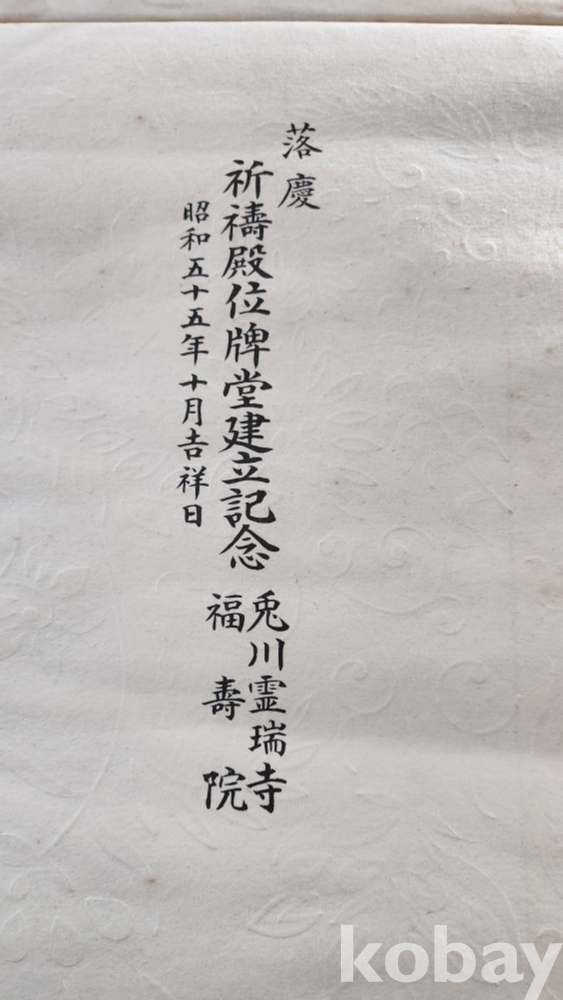 落慶
祈禱殿位牌堂建立記念
昭和五十五年十月吉祥日
兎川霊瑞寺
福壽院
kobay